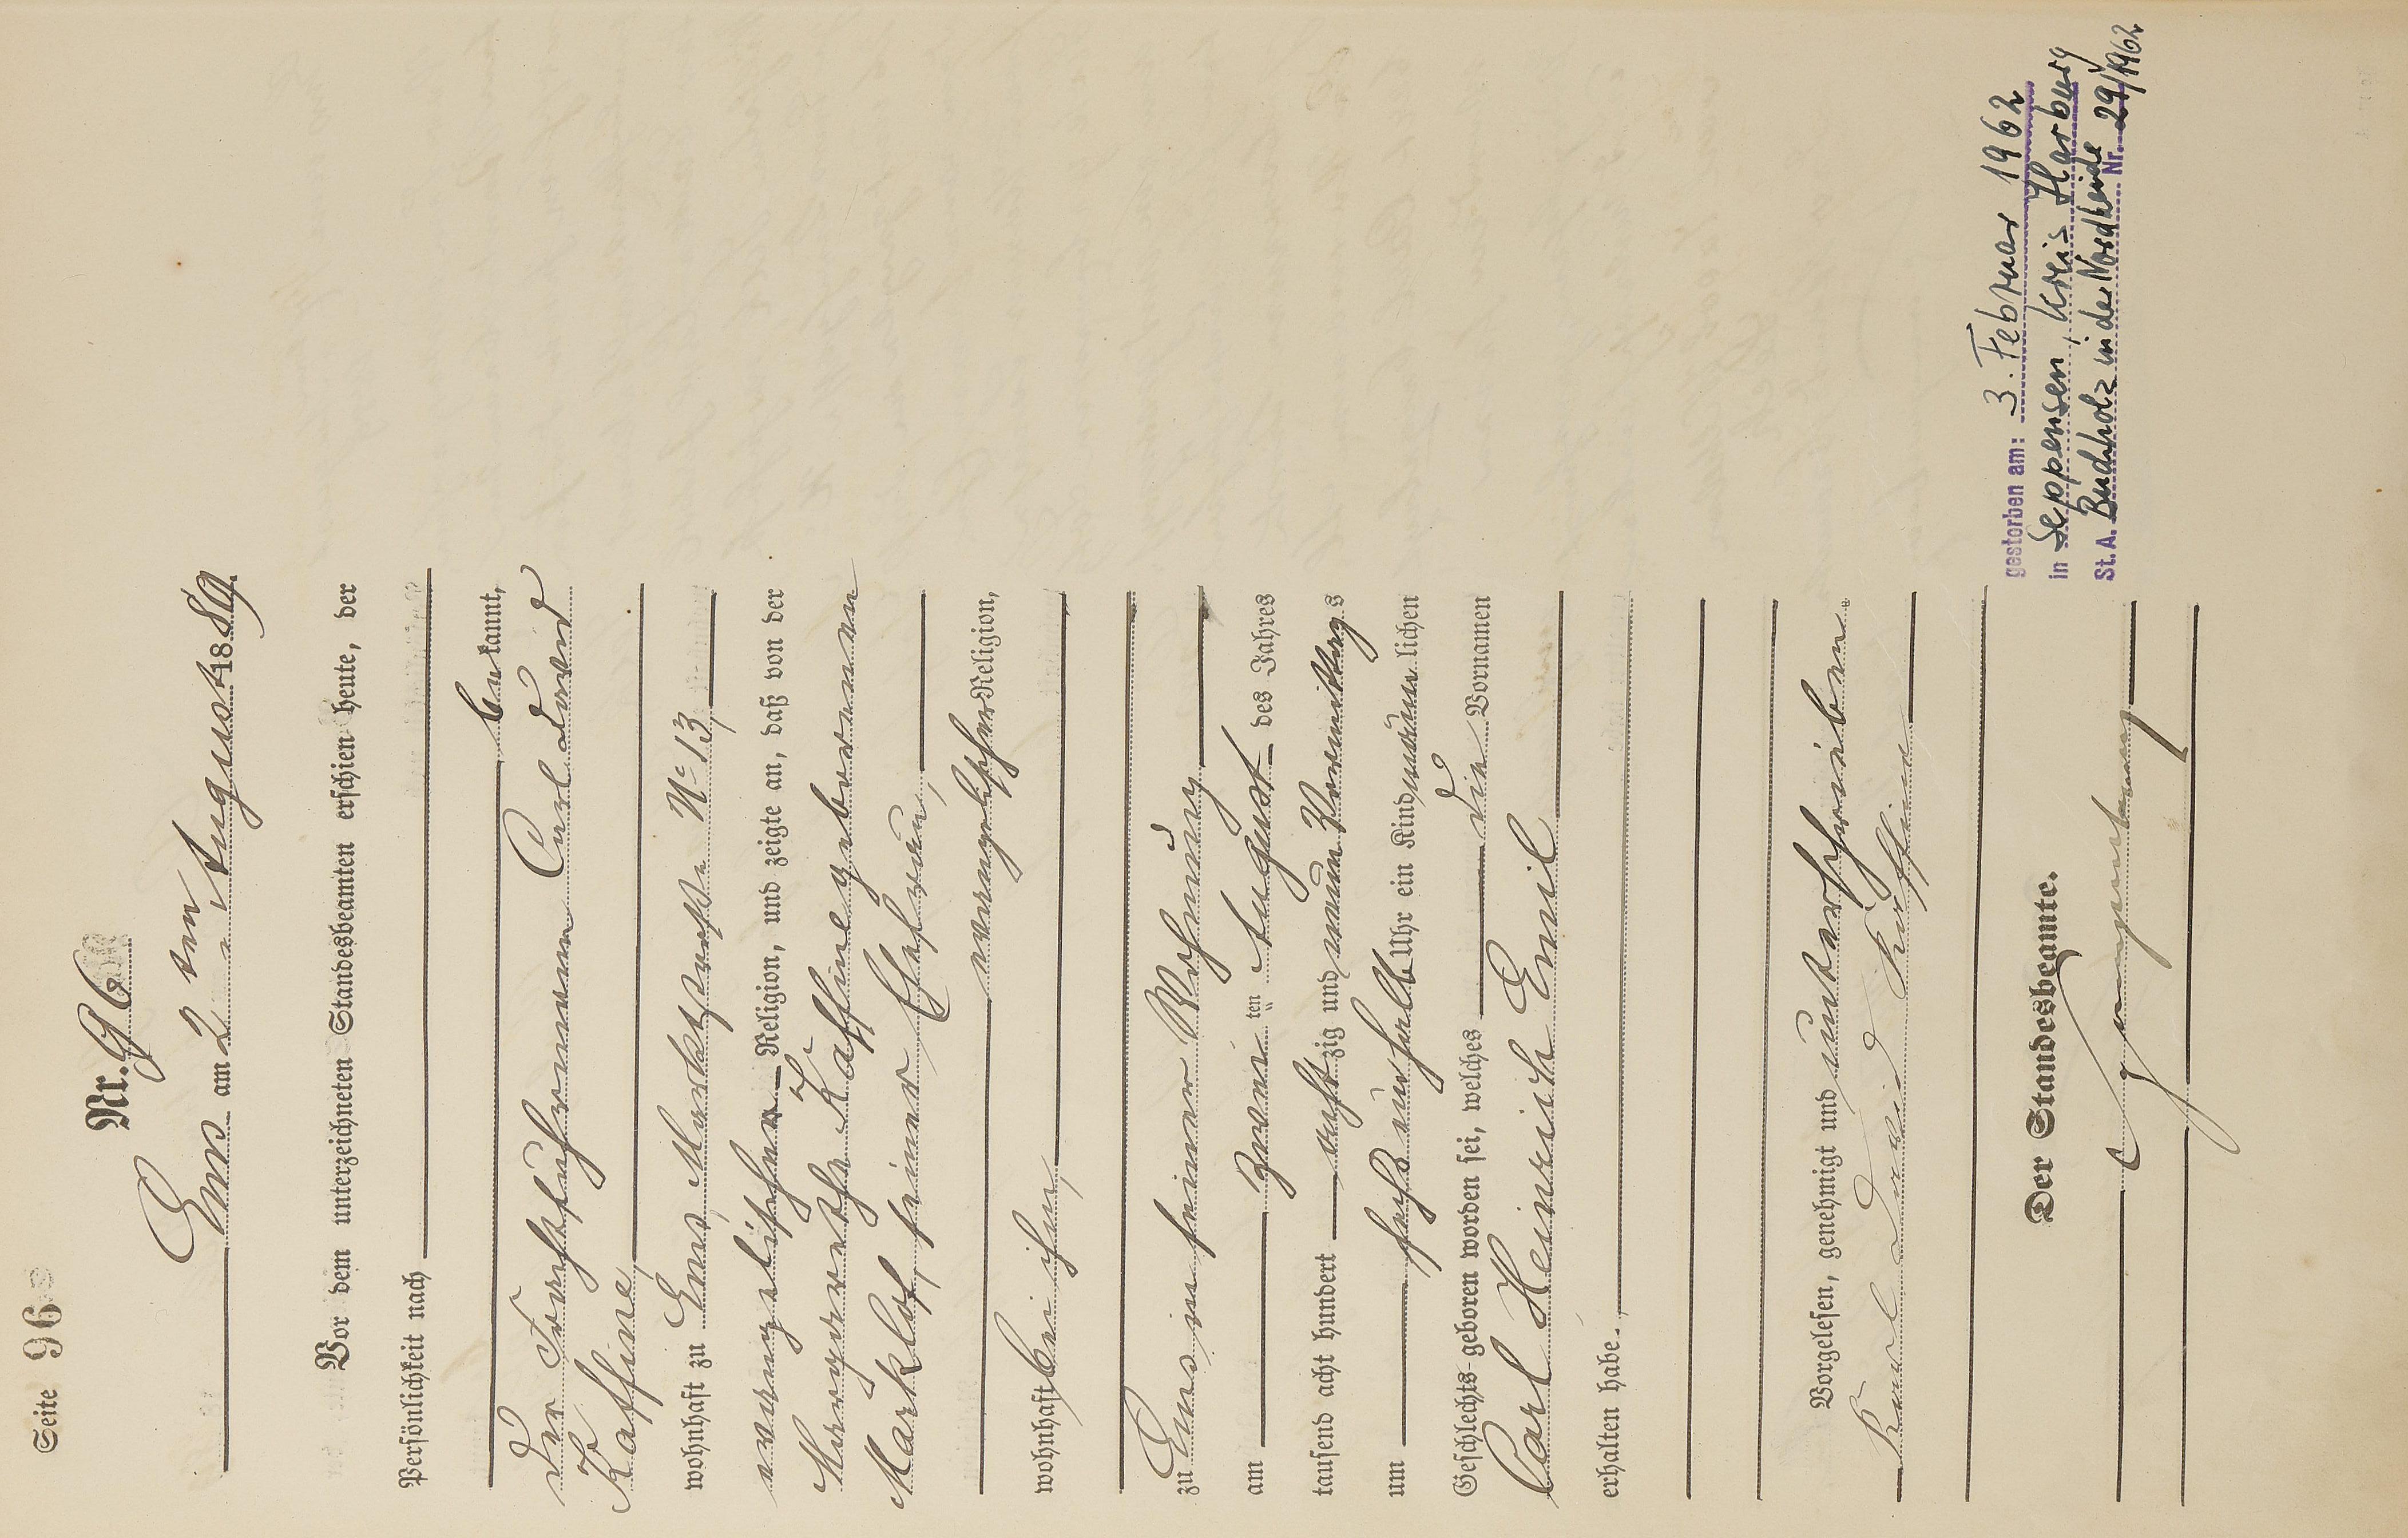 Seite 96
Nr. 96
Ems am 2 ten August 1889.
Vor dem unterzeichneten Standesbeamten erschien heute, der
Persönlichkeit nach
bekannt,
der Frachtfuhrmann Carl David
Kaffine,
wohnhaft zu Ems, Marktstraße No 13,
evangelischer Religion, und zeigte an, daß von der
Margarethe Kaffine geborenen
Markloff, seiner Ehefrau,
evangelischer Religion,
wohnhaft bei ihm,
zu Ems in seiner Wohnung
am zwei ten August des Jahres
tausend acht hundert achtzig und neun Vormittags
um sechs einhalb Uhr ein Kind männlichen
Geschlechts geboren worden sei, welches die Vornamen
Carl Heinrich Emil
erhalten habe.
Vorgelesen, genehmigt und unterschrieben
Karl David Kaffine
Der Standesbeamte.
gestorben am: 3. Februar 1962
in Seppensen, Kreis Harburg
St. A. Buchholz in der Nordheide Nr. 29/1962